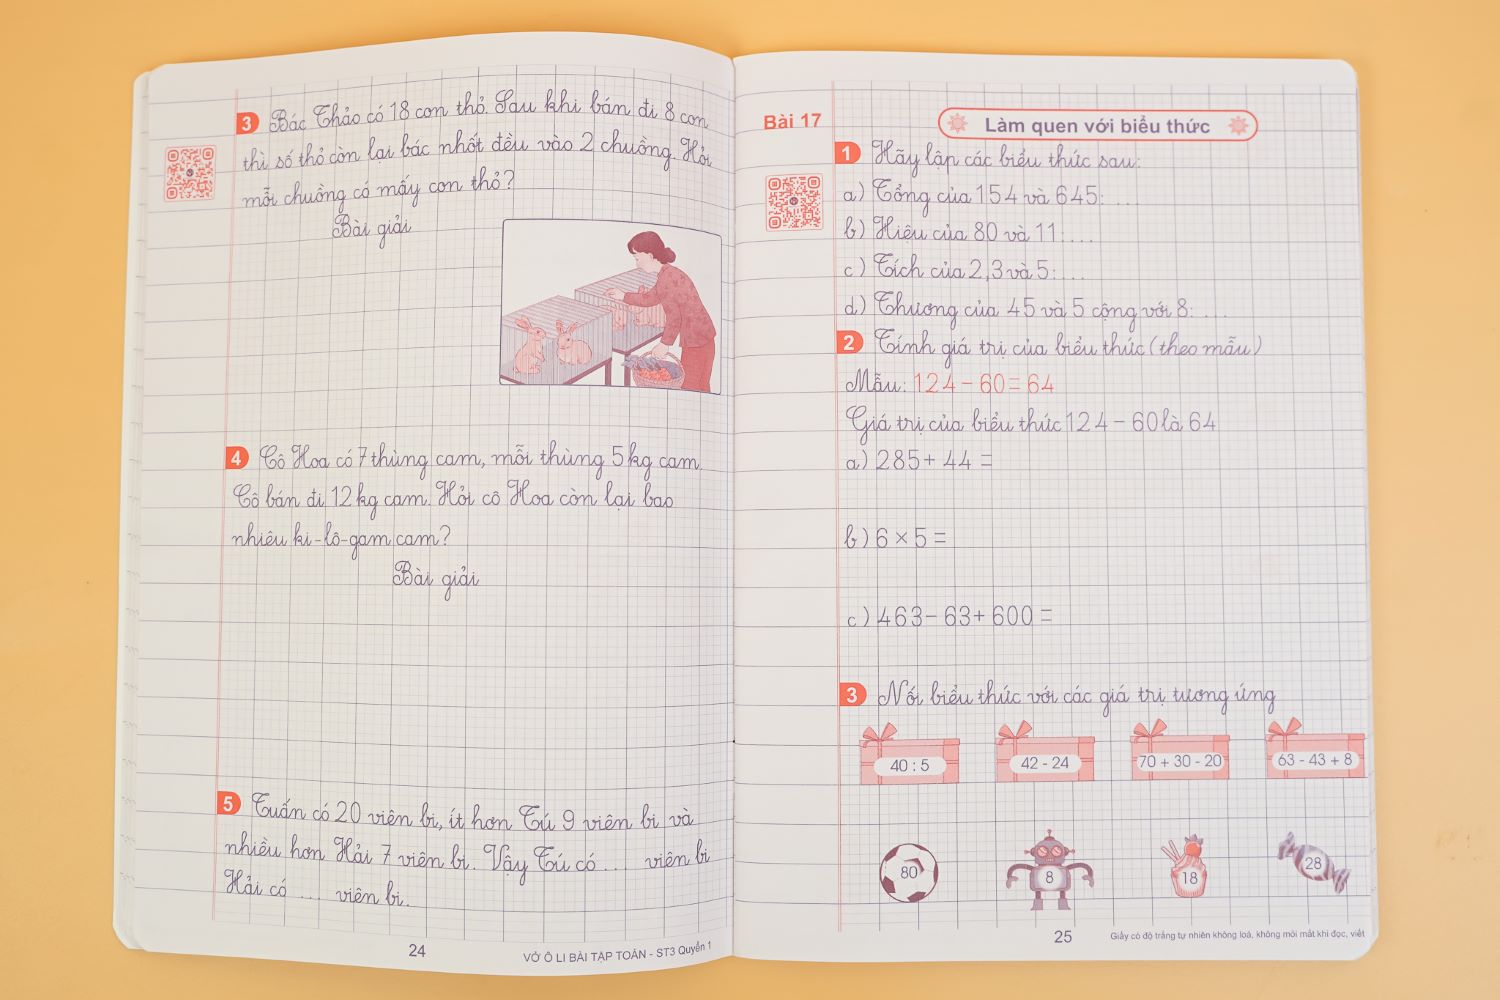 3 Bác Thảo có 18 con thỏ. Sau khi bán đi 8 con
thì số thỏ còn lại bác nhốt đều vào 2 chuồng. Hỏi
mỗi chuồng có mấy con thỏ?
Bài giải
4 Cô Hoa có 7 thùng cam, mỗi thùng 5 kg cam.
Cô bán đi 12 kg cam. Hỏi cô Hoa còn lại bao
nhiêu ki-lô-gam cam?
Bài giải
5 Tuấn có 20 viên bi, ít hơn Tú 9 viên bi và
nhiều hơn Hải 7 viên bi. Vậy Tú có .... viên bi
Hải có .... viên bi.
24
VỞ Ô LI BÀI TẬP TOÁN - ST3 Quyển 1
Bài 17
Làm quen với biểu thức
1 Hãy lập các biểu thức sau:
a) Tổng của 154 và 645: ....
b) Hiệu của 80 và 11: ....
c) Tích của 2,3 và 5: ....
d) Thương của 45 và 5 cộng với 8: ....
2 Tính giá trị của biểu thức (theo mẫu)
Mẫu: 124 - 60 = 64
Giá trị của biểu thức 124 - 60 là 64
a) 285 + 44 =
b) 6 × 5 =
c) 463 - 63 + 600 =
3 Nối biểu thức với các giá trị tương ứng
40 : 5
42 - 24
70 + 30 - 20
63 - 43 + 8
80
8
18
28
25
Giấy có độ trắng tự nhiên không loá, không mỏi mắt khi đọc, viết